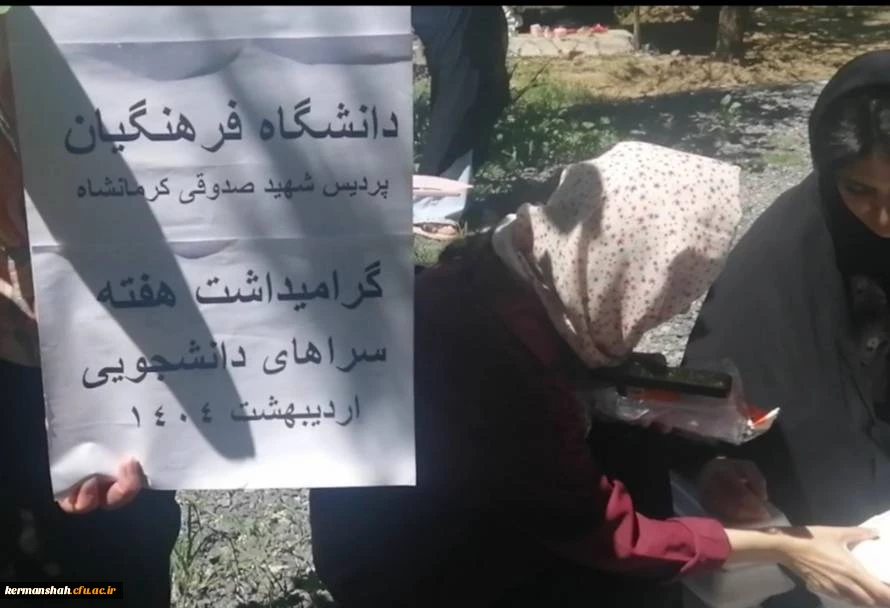 دانشگاه فرهنگیان
پردیس شهید صدوقی کرمانشاه
گرامیداشت هفته
سراهای دانشجویی
اردیبهشت ۱۴۰۴
kermanshah.cfu.ac.ir